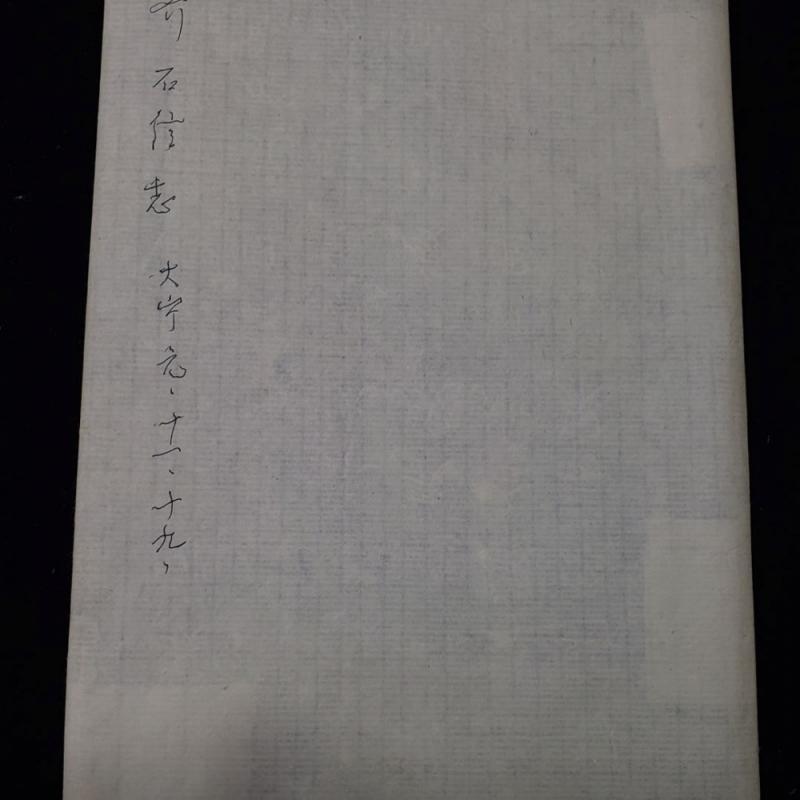 齐石信志 大宁元、十一、十九、